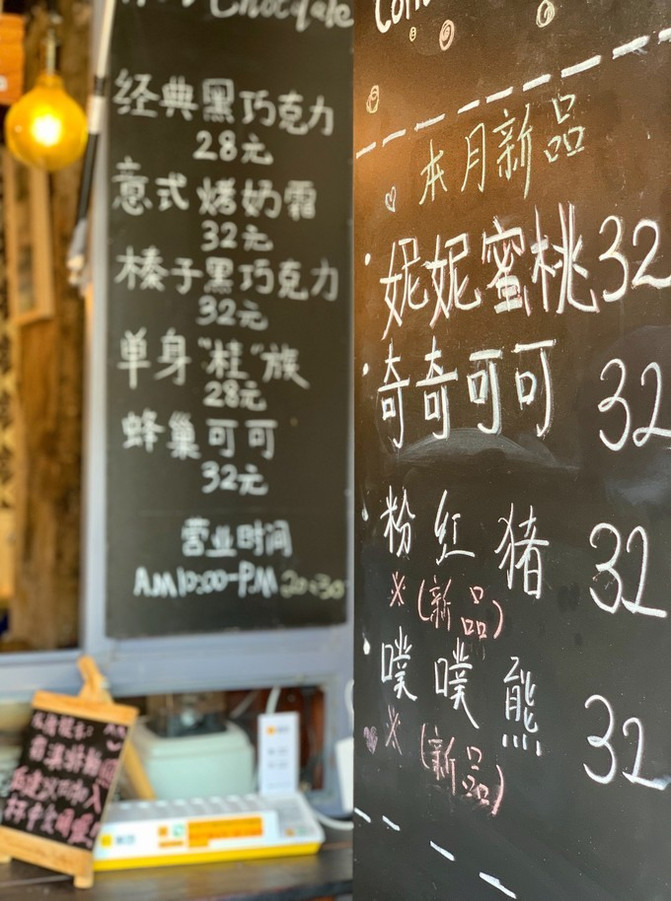 Chocolate
经典黑巧克力
28元
意式烤奶霜
32元
榛子黑巧克力
32元
单身"桂"族
28元
蜂巢可可
32元
营业时间
AM10:00-P.M 20:30
本月新品
妮妮蜜桃 32
奇奇可可 32
粉红猪 32
※(新品)
噗噗熊 32
※(新品)